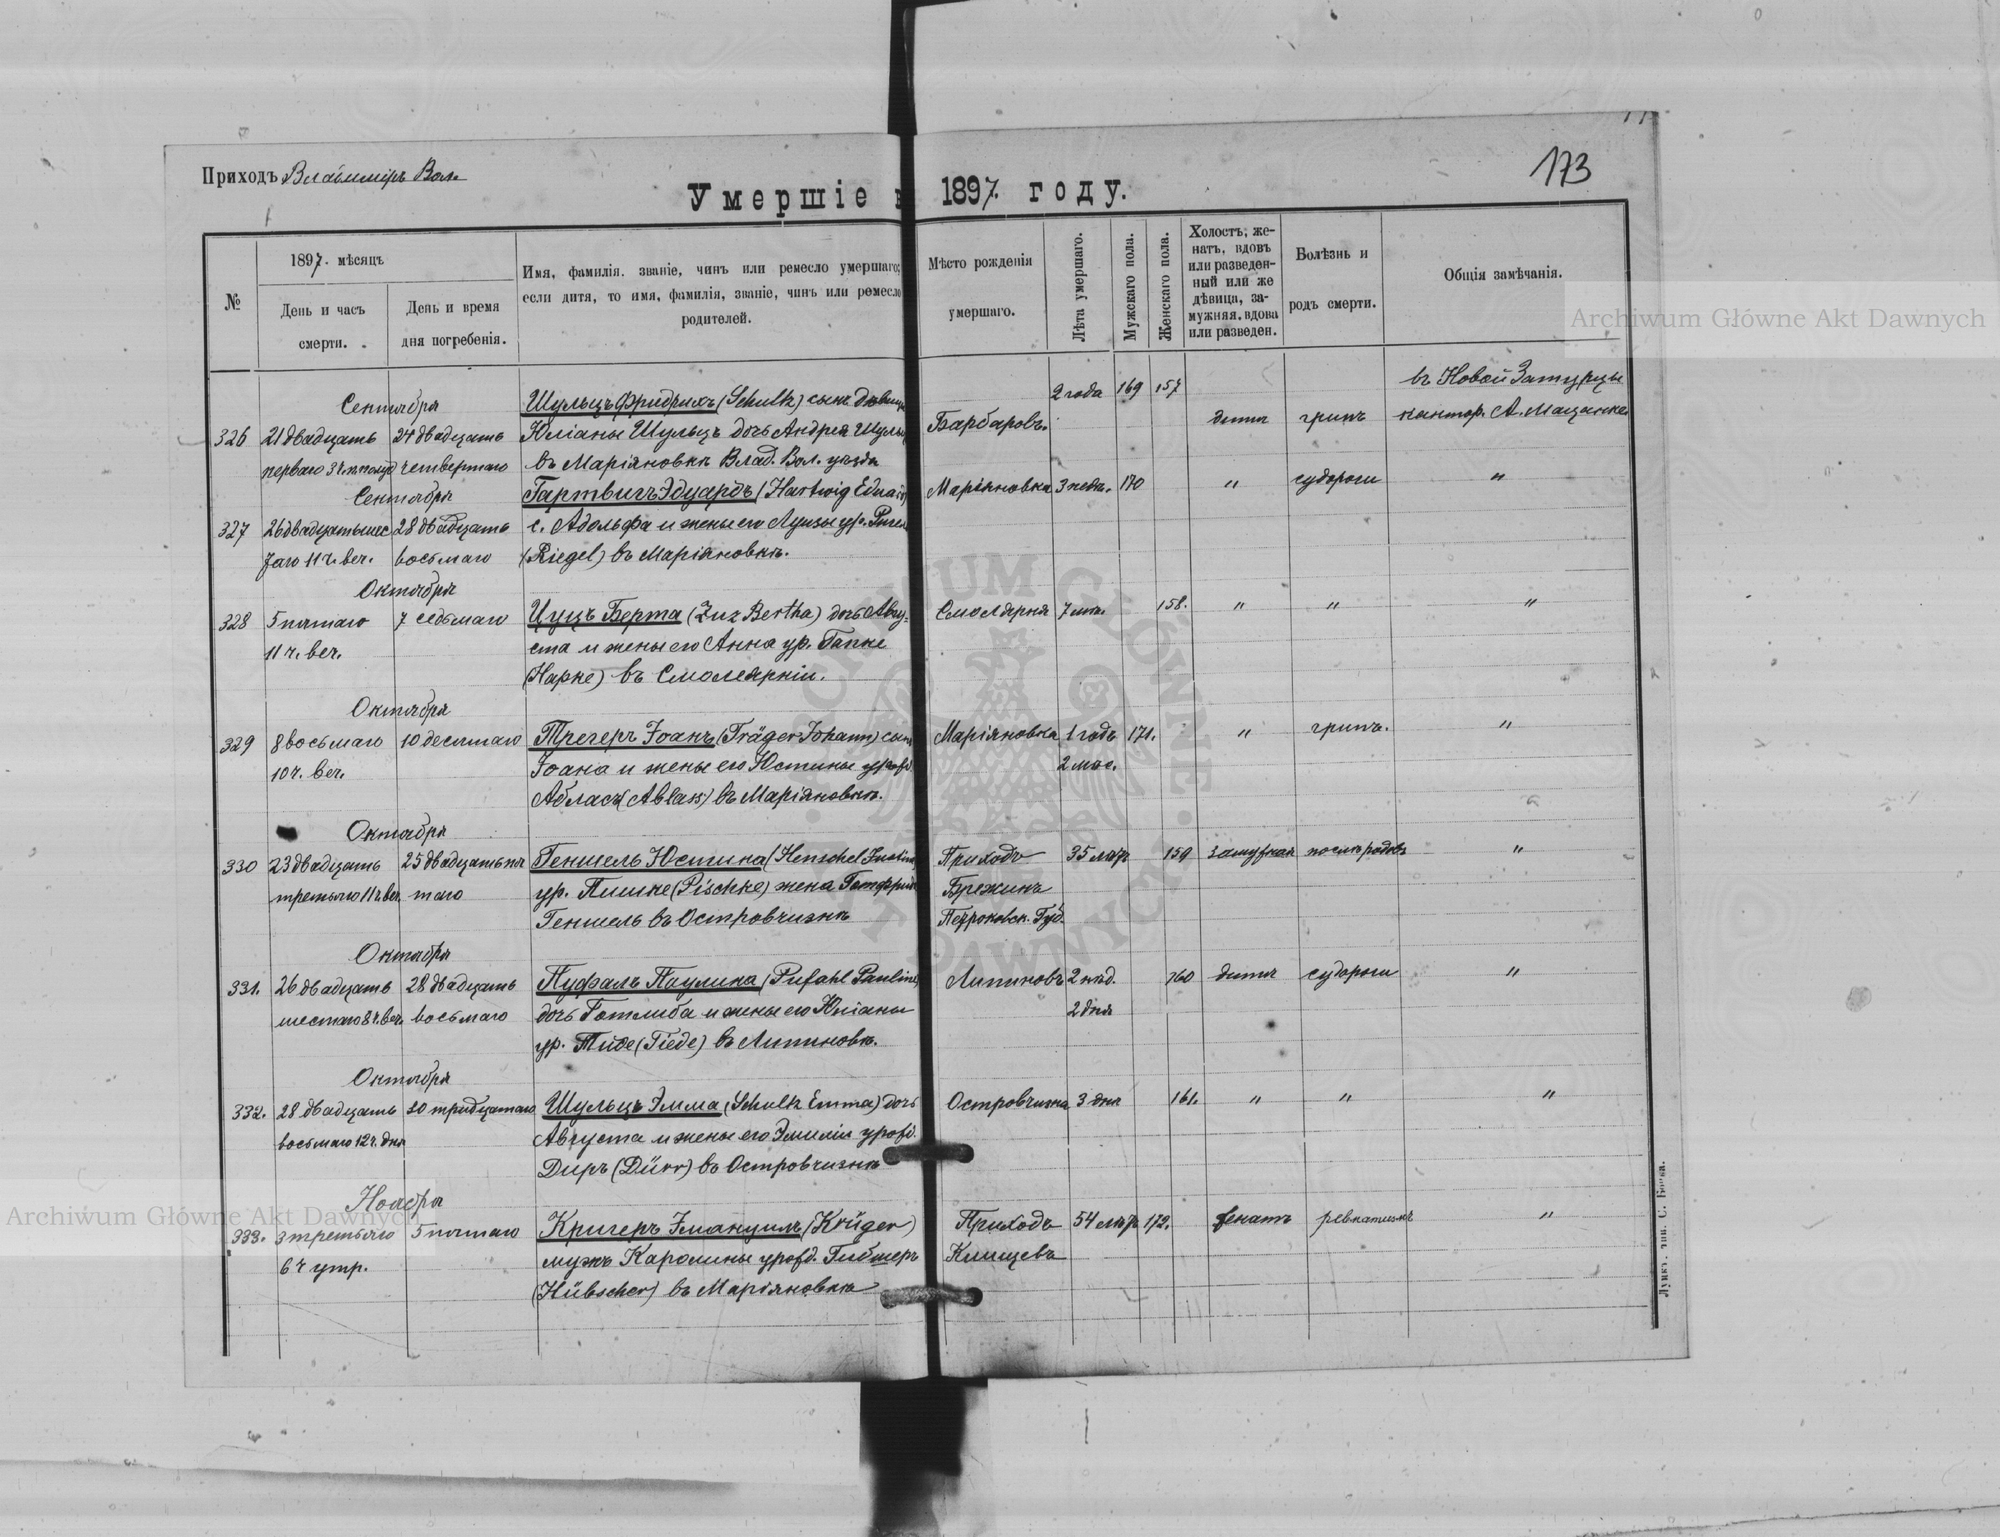 173
Приходъ Владиміръ Вол.
Умершіе в 1897. году.
№
1897. мѣсяцъ
День и часъ смерти.
День и время дня погребенія.
Имя, фамилія. званіе, чинъ или ремесло умершаго;
если дитя, то имя, фамилія, званіе, чинъ или ремесло
родителей.
Мѣсто рожденія
умершаго.
Лѣта умершаго.
Мужскаго пола.
Женскаго пола.
Холостъ, же-
натъ, вдовъ
или разведен-
ный или же
дѣвица, за-
мужняя, вдова
или разведен.
Болѣзнь и
родъ смерти.
Общія замѣчанія.
Archiwum Główne Akt Dawnych
Сентября
326 21 двадцать 24 двадцать
перваго 3 ч. четвертаго
Шульцъ Фридрихъ (Schultz) сынъ
Юліаны Шульцъ дочь Андрея
въ Маріяновкѣ Влад. Вол. уѣзда
Барбаровъ. 2 года 169 157 дитя грипъ
въ Новой Затурцы
кантор. А.
Сентября
327 26 двадцать 28 двадцать
11 ч. веч. восьмаго
Гартвигъ Эдуардъ (Hartwig Eduard)
с. Адольфа и жены его Луизы ур.
(Riegel) въ Маріяновкѣ.
Маріяновка 3 170 " судороги "
Октября
328 5 пятаго 7 седьмаго
11 ч. веч.
Цуцъ Берта (Zuz Bertha) дочь Авгу=
ста и жены его Анна ур. Гапке
(Hapke) въ Смолеярніи.
Смолярня 7 158. " " "
Октября
329 8 восьмаго 10 десятаго
10 ч. веч.
Трегеръ Іоанъ (Träger Johann) сынъ
Іоана и жены его Юстины урожд.
Абласъ (Ablass) въ Маріяновкѣ.
Маріяновка 1 годъ 171. " грипъ. "
2 мѣс.
Октября
330 23 двадцать 25 двадцать пя
третьяго 11 ч. веч. таго
Геншель Юстина (Henschel Justine)
ур. Пишке (Pischke) жена Готфрида
Геншель въ Островчизнѣ
Приходъ 35 лѣтъ 159 замужняя послѣ родовъ "
Брежинъ
Петроковск. Губ.
Октября
331. 26 двадцать 28 двадцать
шестаго 8 ч. веч. восьмаго
Пуфаль Паулина (Pufahl Pauline)
дочь Готлиба и жены его Юліаны
ур. Тиде (Tiede) въ Липиновк.
Липиновъ 2 нед. 160 дитя судороги "
2 дня
Октября
332. 28 двадцать 30 тридцатаго
восьмаго 12 ч. дня
Шульцъ Эмма (Schultz Emma) дочь
Августа и жены его Эмиліи урожд.
Диръ (Dürr) въ Островчизнѣ
Островчизна 3 дня 161. " " "
Ноября
333. 3 третьяго 5 пятаго
6 ч утр.
Кригеръ Эмануилъ (Krüger)
мужъ Каролины урожд. Гибшеръ
(Hübscher) въ Маріяновкѣ
Приходъ 54 лѣтъ 172. женатъ ревматизмъ "
Клищевъ
Archiwum Główne Akt Dawnych
ARCHIWUM GŁÓWNE AKT DAWNYCH